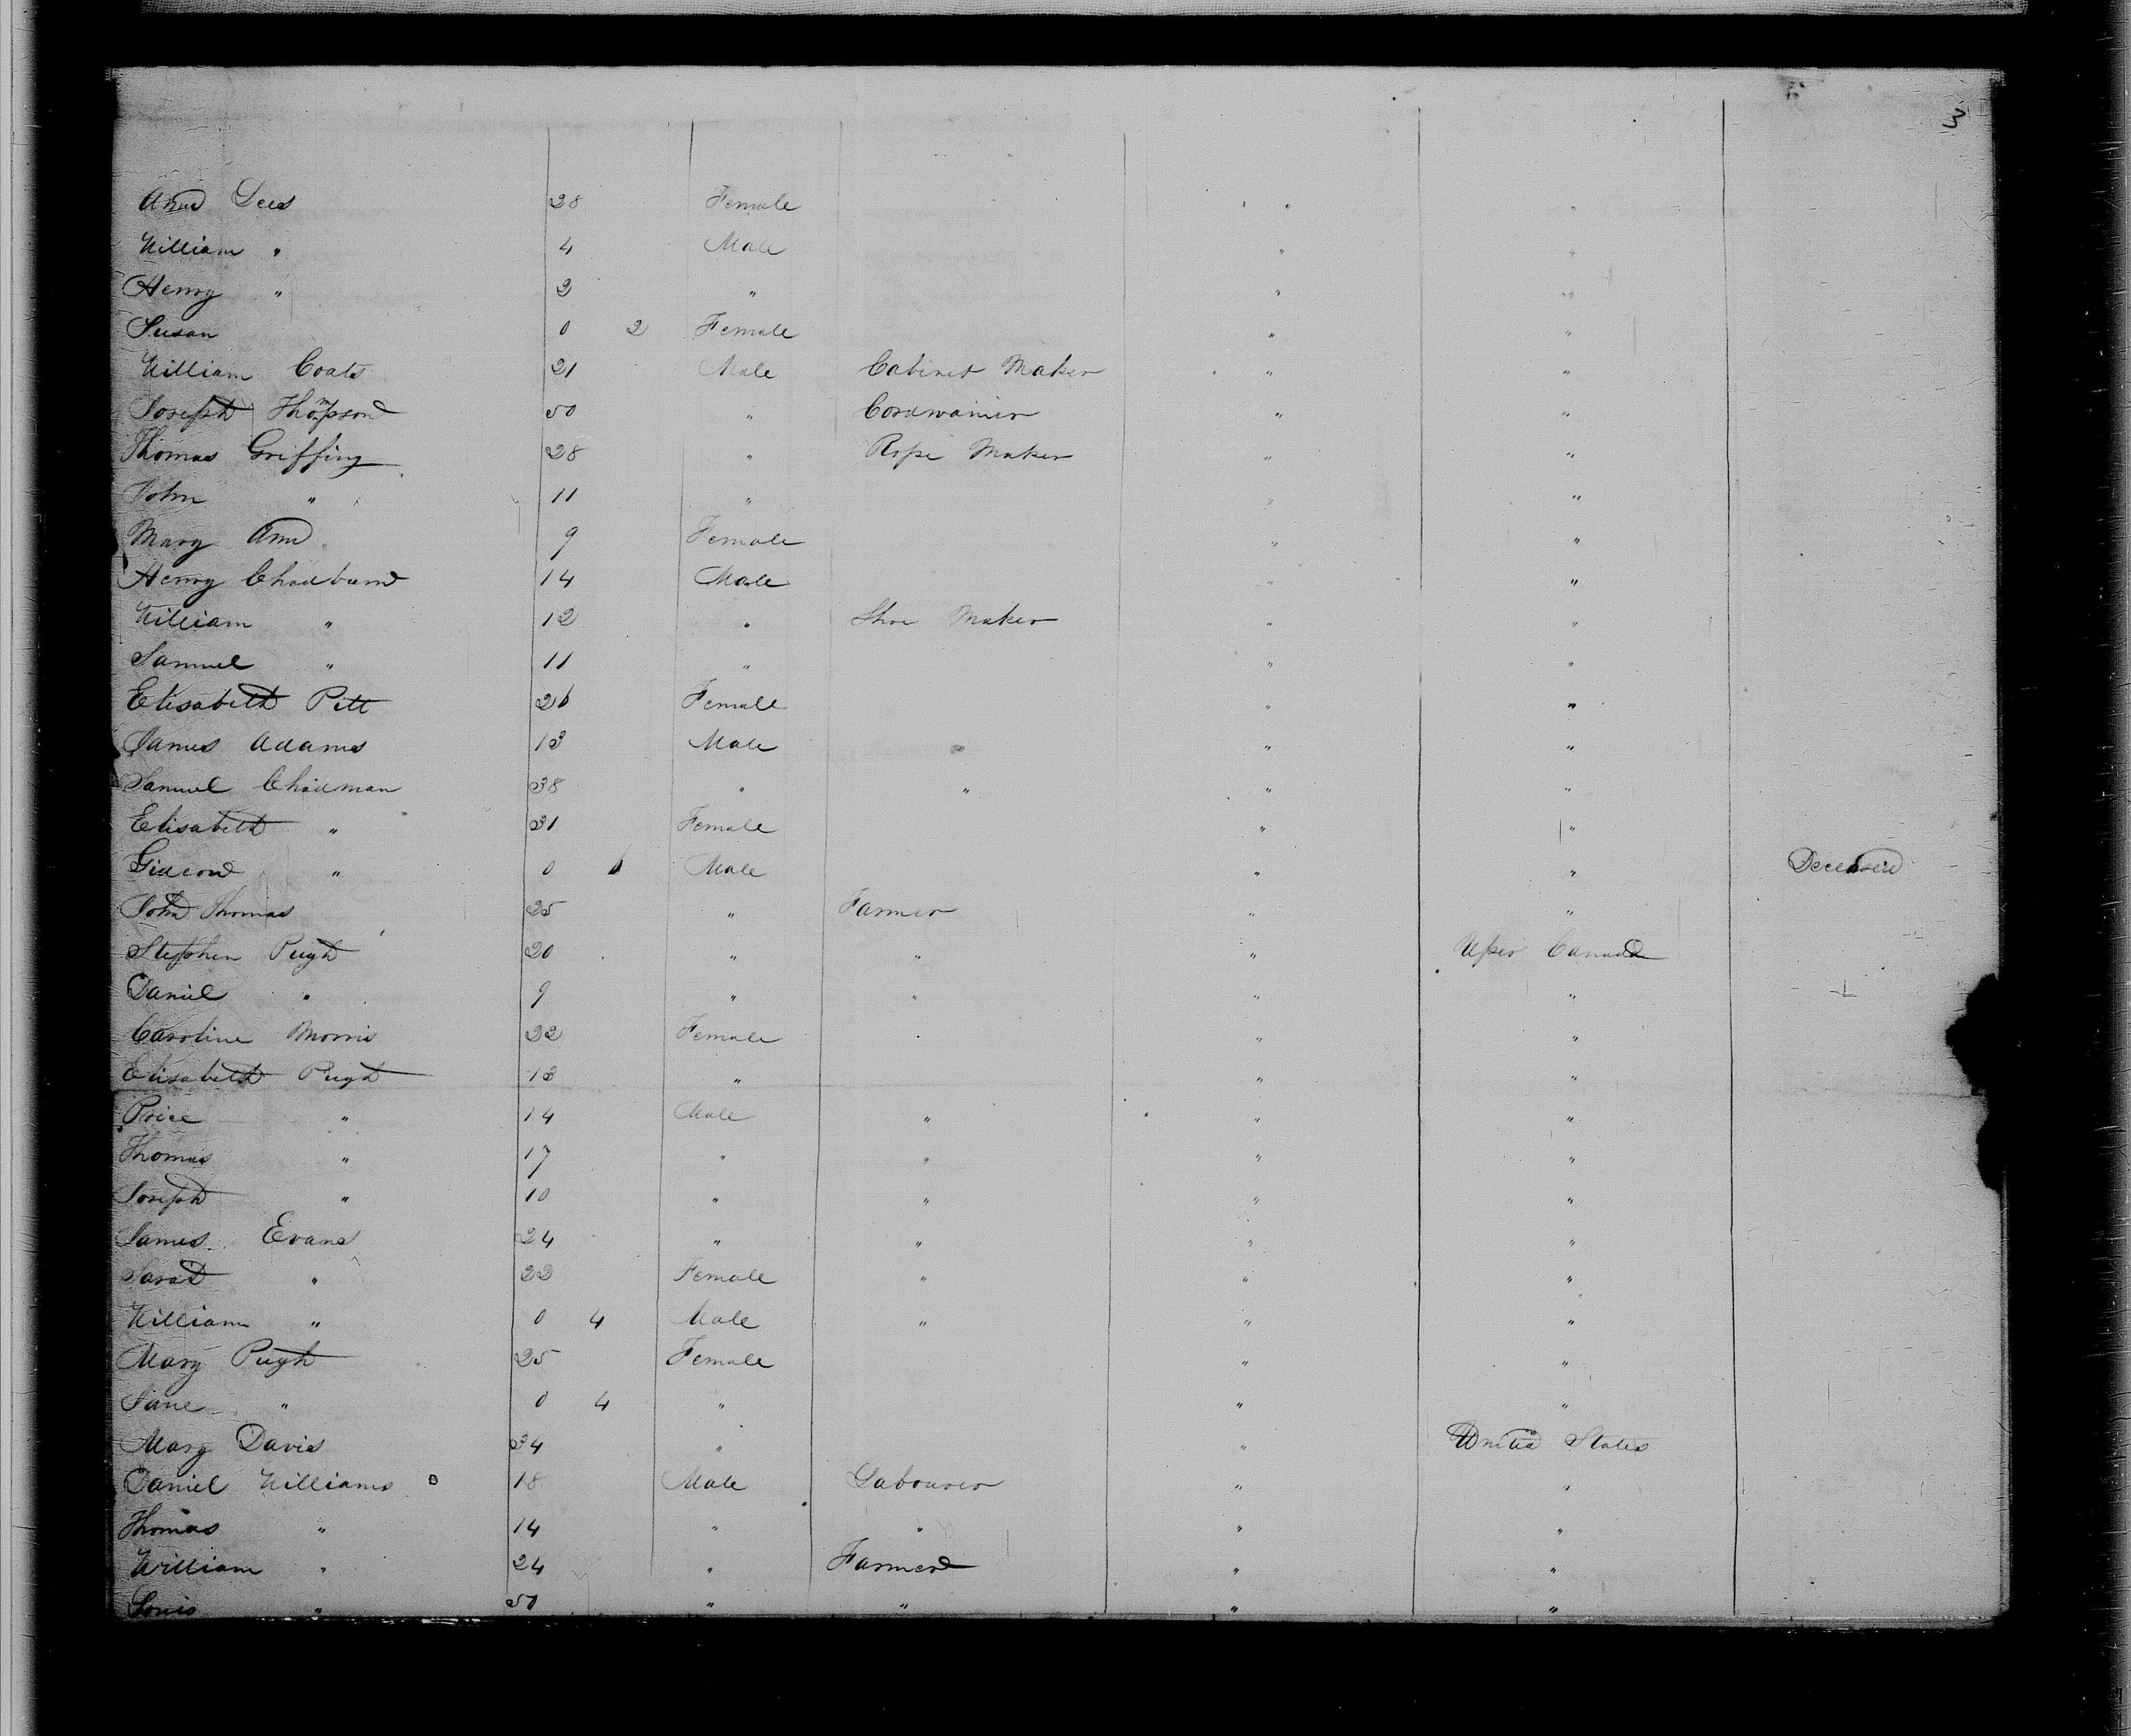 3
Ann Lees 28 Female " "
William " 4 Male " "
Henry " 2 " " "
Susan 0 2 Female " "
William Coats 21 Male Cabinet Maker " "
Joseph Thompson 50 " Cordwainer " "
Thomas Griffing 28 " Rope Maker " "
John " 11 " " "
Mary Ann 9 Female " "
Henry Chadburn 14 Male " "
William " 12 " Shoe Maker " "
Samuel " 11 " " "
Elisabeth Pitt 26 Female " "
James Adams 13 Male " " "
Samuel Chadman 38 " " " "
Elisabeth " 31 Female " "
Gideon " 0 6 Male " " Deceased
John Thomas 25 " Farmer " "
Stephen Pugh 20 " " " Uper Canada
Daniel " 9 " " " "
Caroline Morris 22 Female " "
Elisabeth Pugh 13 " " "
Price " 14 Male " " "
Thomas " 17 " " " "
Joseph " 10 " " " "
James Evans 24 " " " "
Sarah " 22 Female " " "
William " 0 4 Male " " "
Mary Pugh 25 Female " "
Jane " 0 4 " " "
Mary Davis 34 " " United States
Daniel Williams 18 Male Labourer " "
Thomas " 14 " " " "
William " 24 " Farmer " "
Louis " 50 " " " "